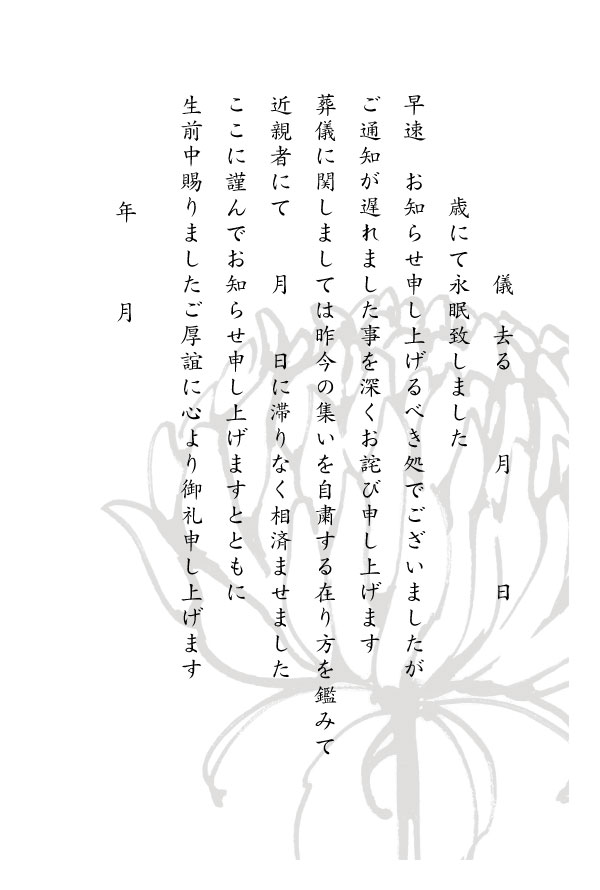 儀　去る　　月　　日
歳にて永眠致しました
早速　お知らせ申し上げるべき処でございましたが
ご通知が遅れました事を深くお詫び申し上げます
葬儀に関しましては昨今の集いを自粛する在り方を鑑みて
近親者にて　　月　　日に滞りなく相済ませました
ここに謹んでお知らせ申し上げますとともに
生前中賜りましたご厚誼に心より御礼申し上げます
年　　月